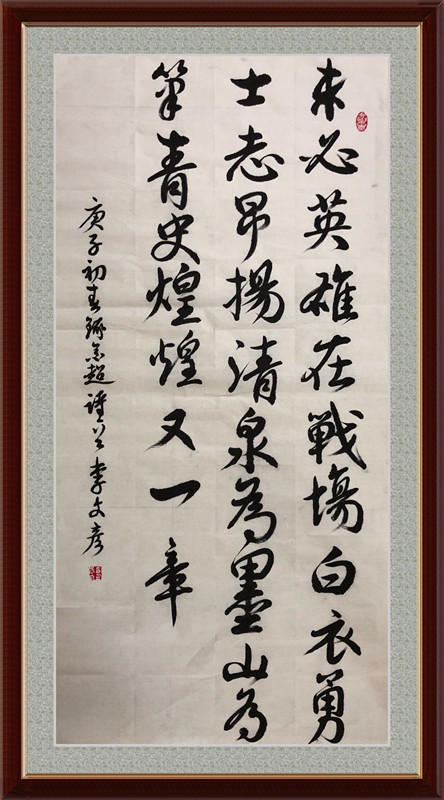 未必英雄在戰場白衣勇
士志昂揚清泉為墨山為
筆青史煌煌又一章
庚子初春錄余超詩 李文彦